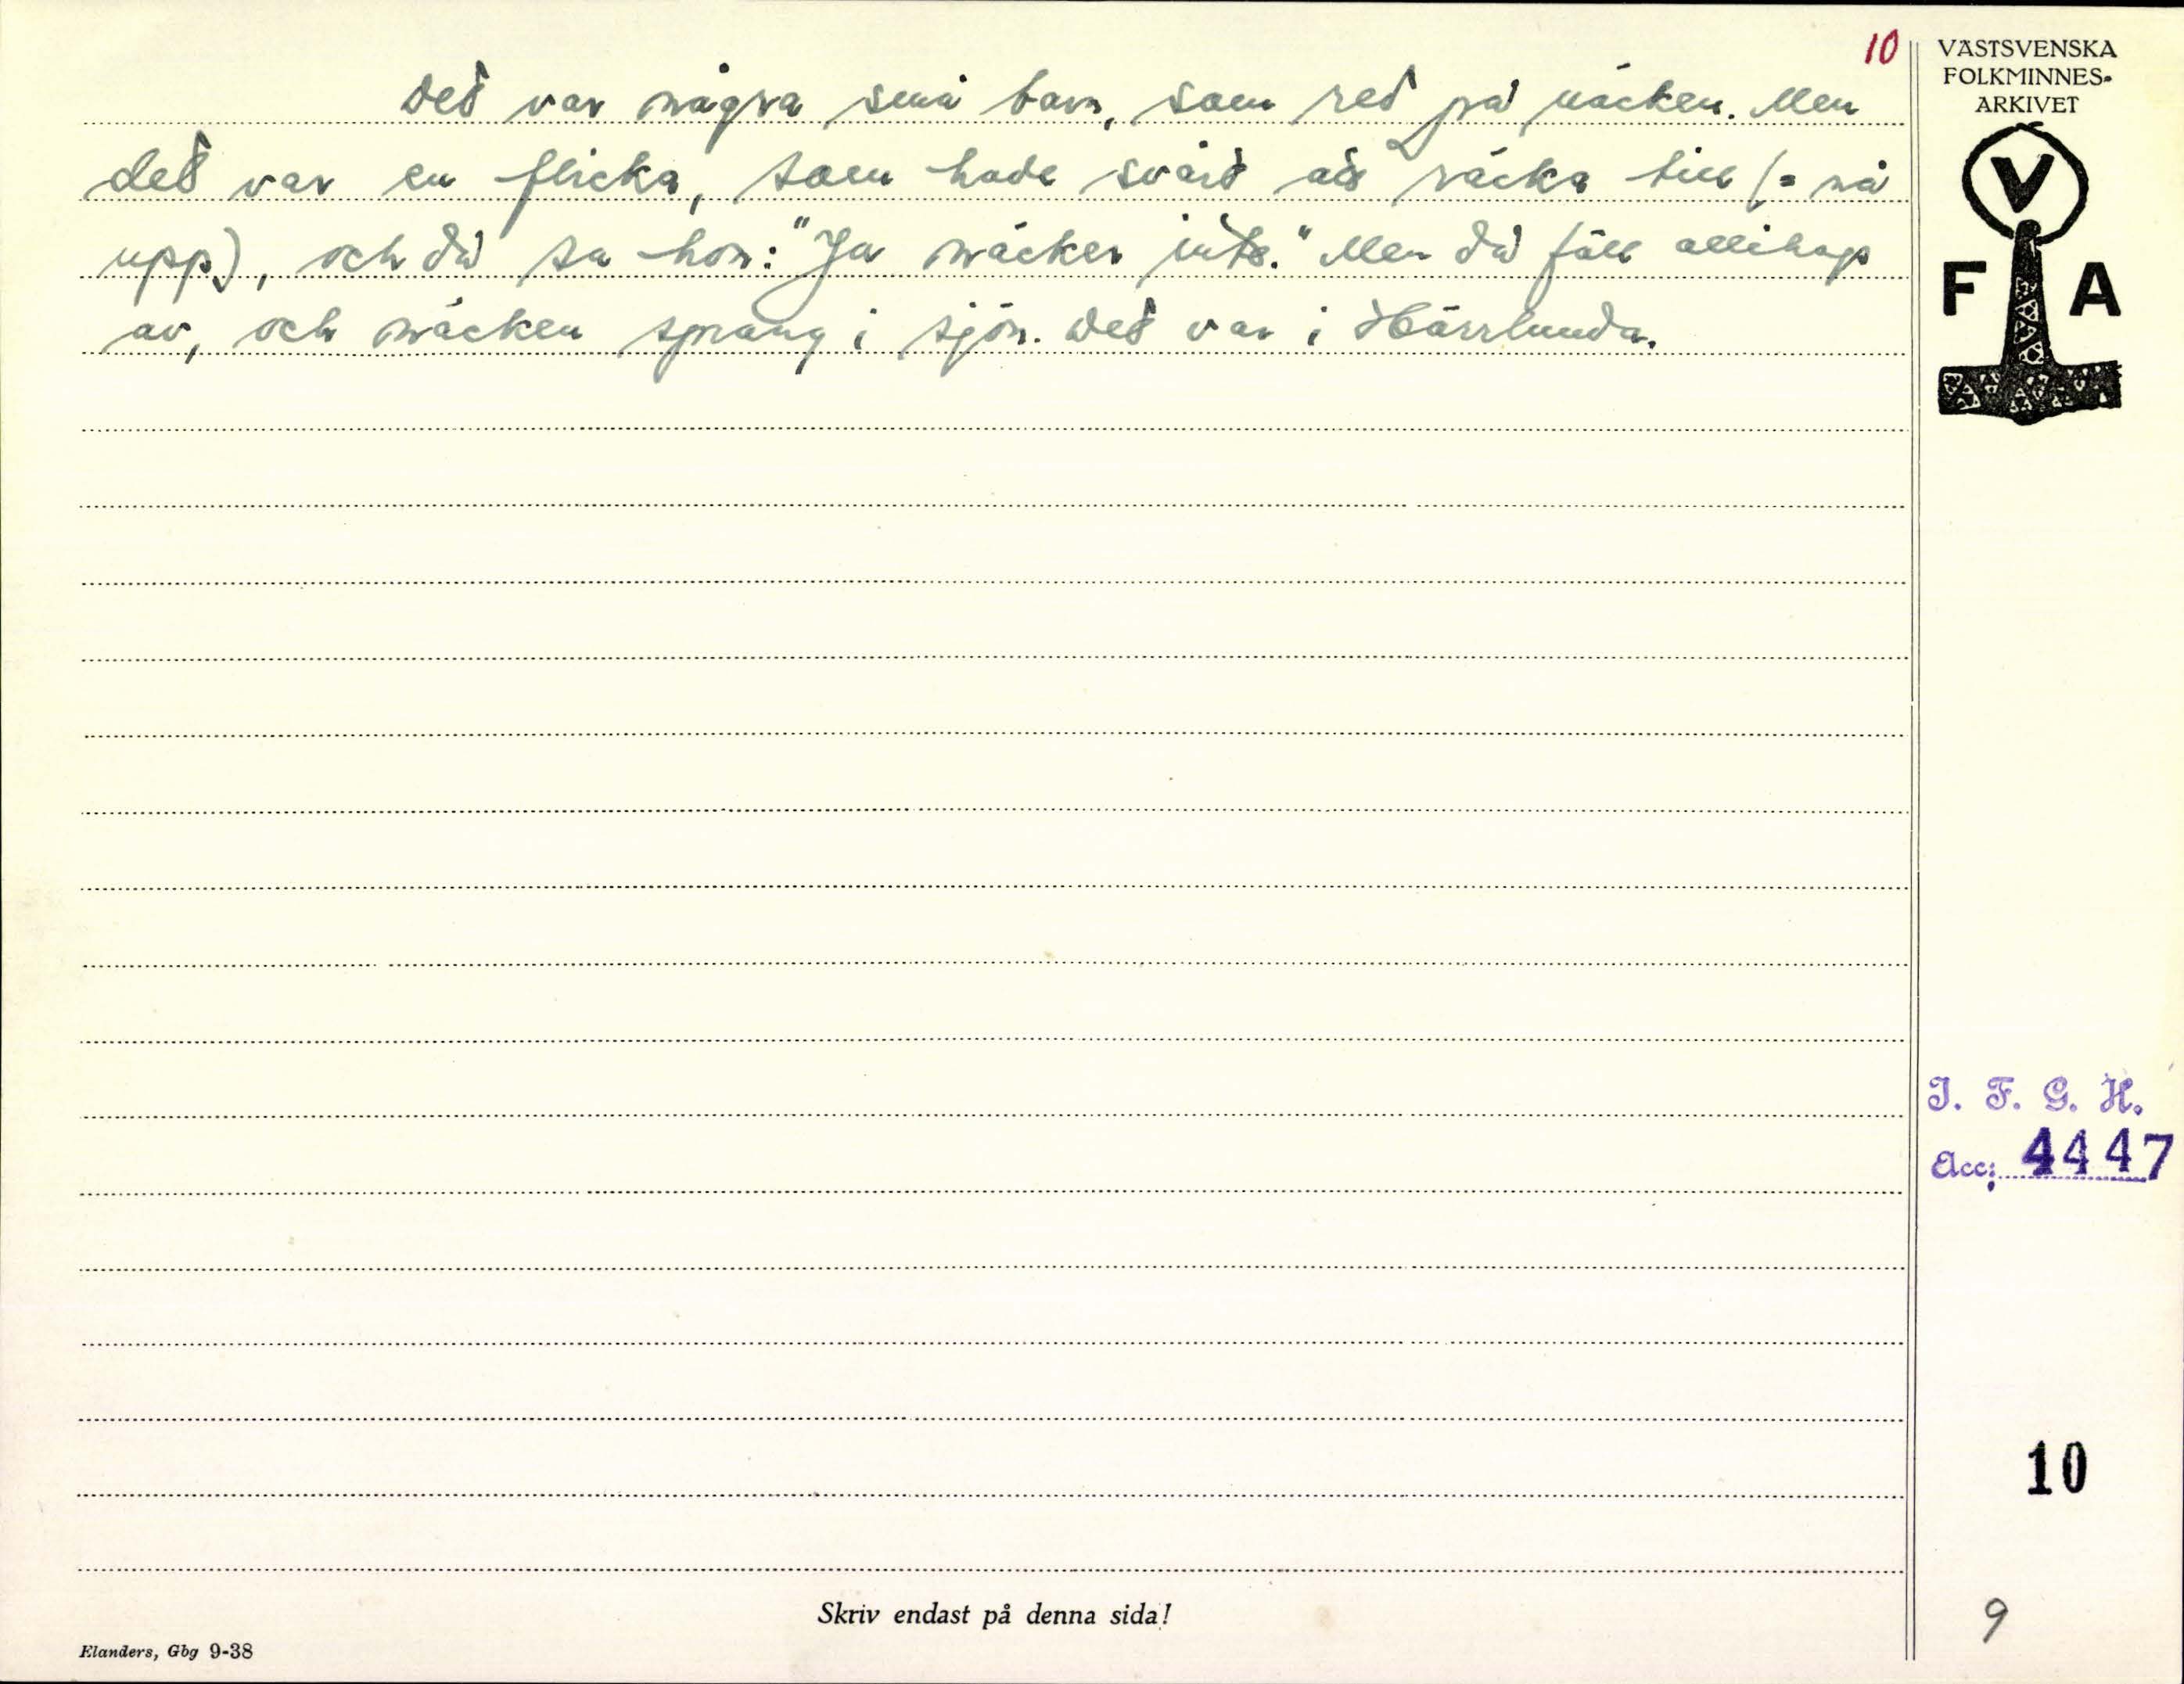 10
Det var några små barn, som red på näcken. Men
det var en flicka, som hade svårt att räcka till (= nå
upp), och då sa hon: "Ja näcker inte." Men då föll allihop
av, och näcken sprang i sjön. Det var i Härrlunda.
VÄSTSVENSKA
FOLKMINNES-
ARKIVET
V
F A
I. F. G. H.
Acc: 4447
10
9
Skriv endast på denna sida!
Elanders, Gbg 9-38